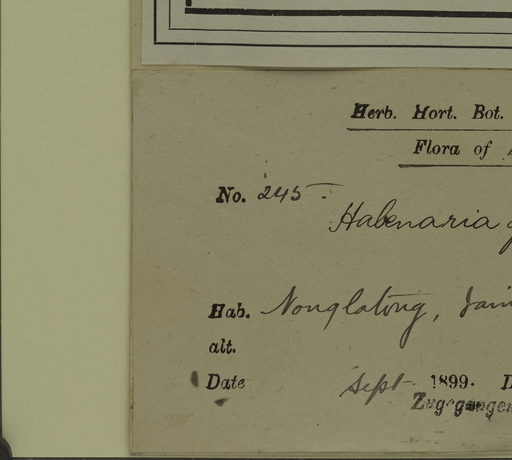 Herb. Hort. Bot.
Flora of
No. 245
Habenaria
Hab. Nonglatong,
alt.
Date Sept. 1899.
Zugegangen